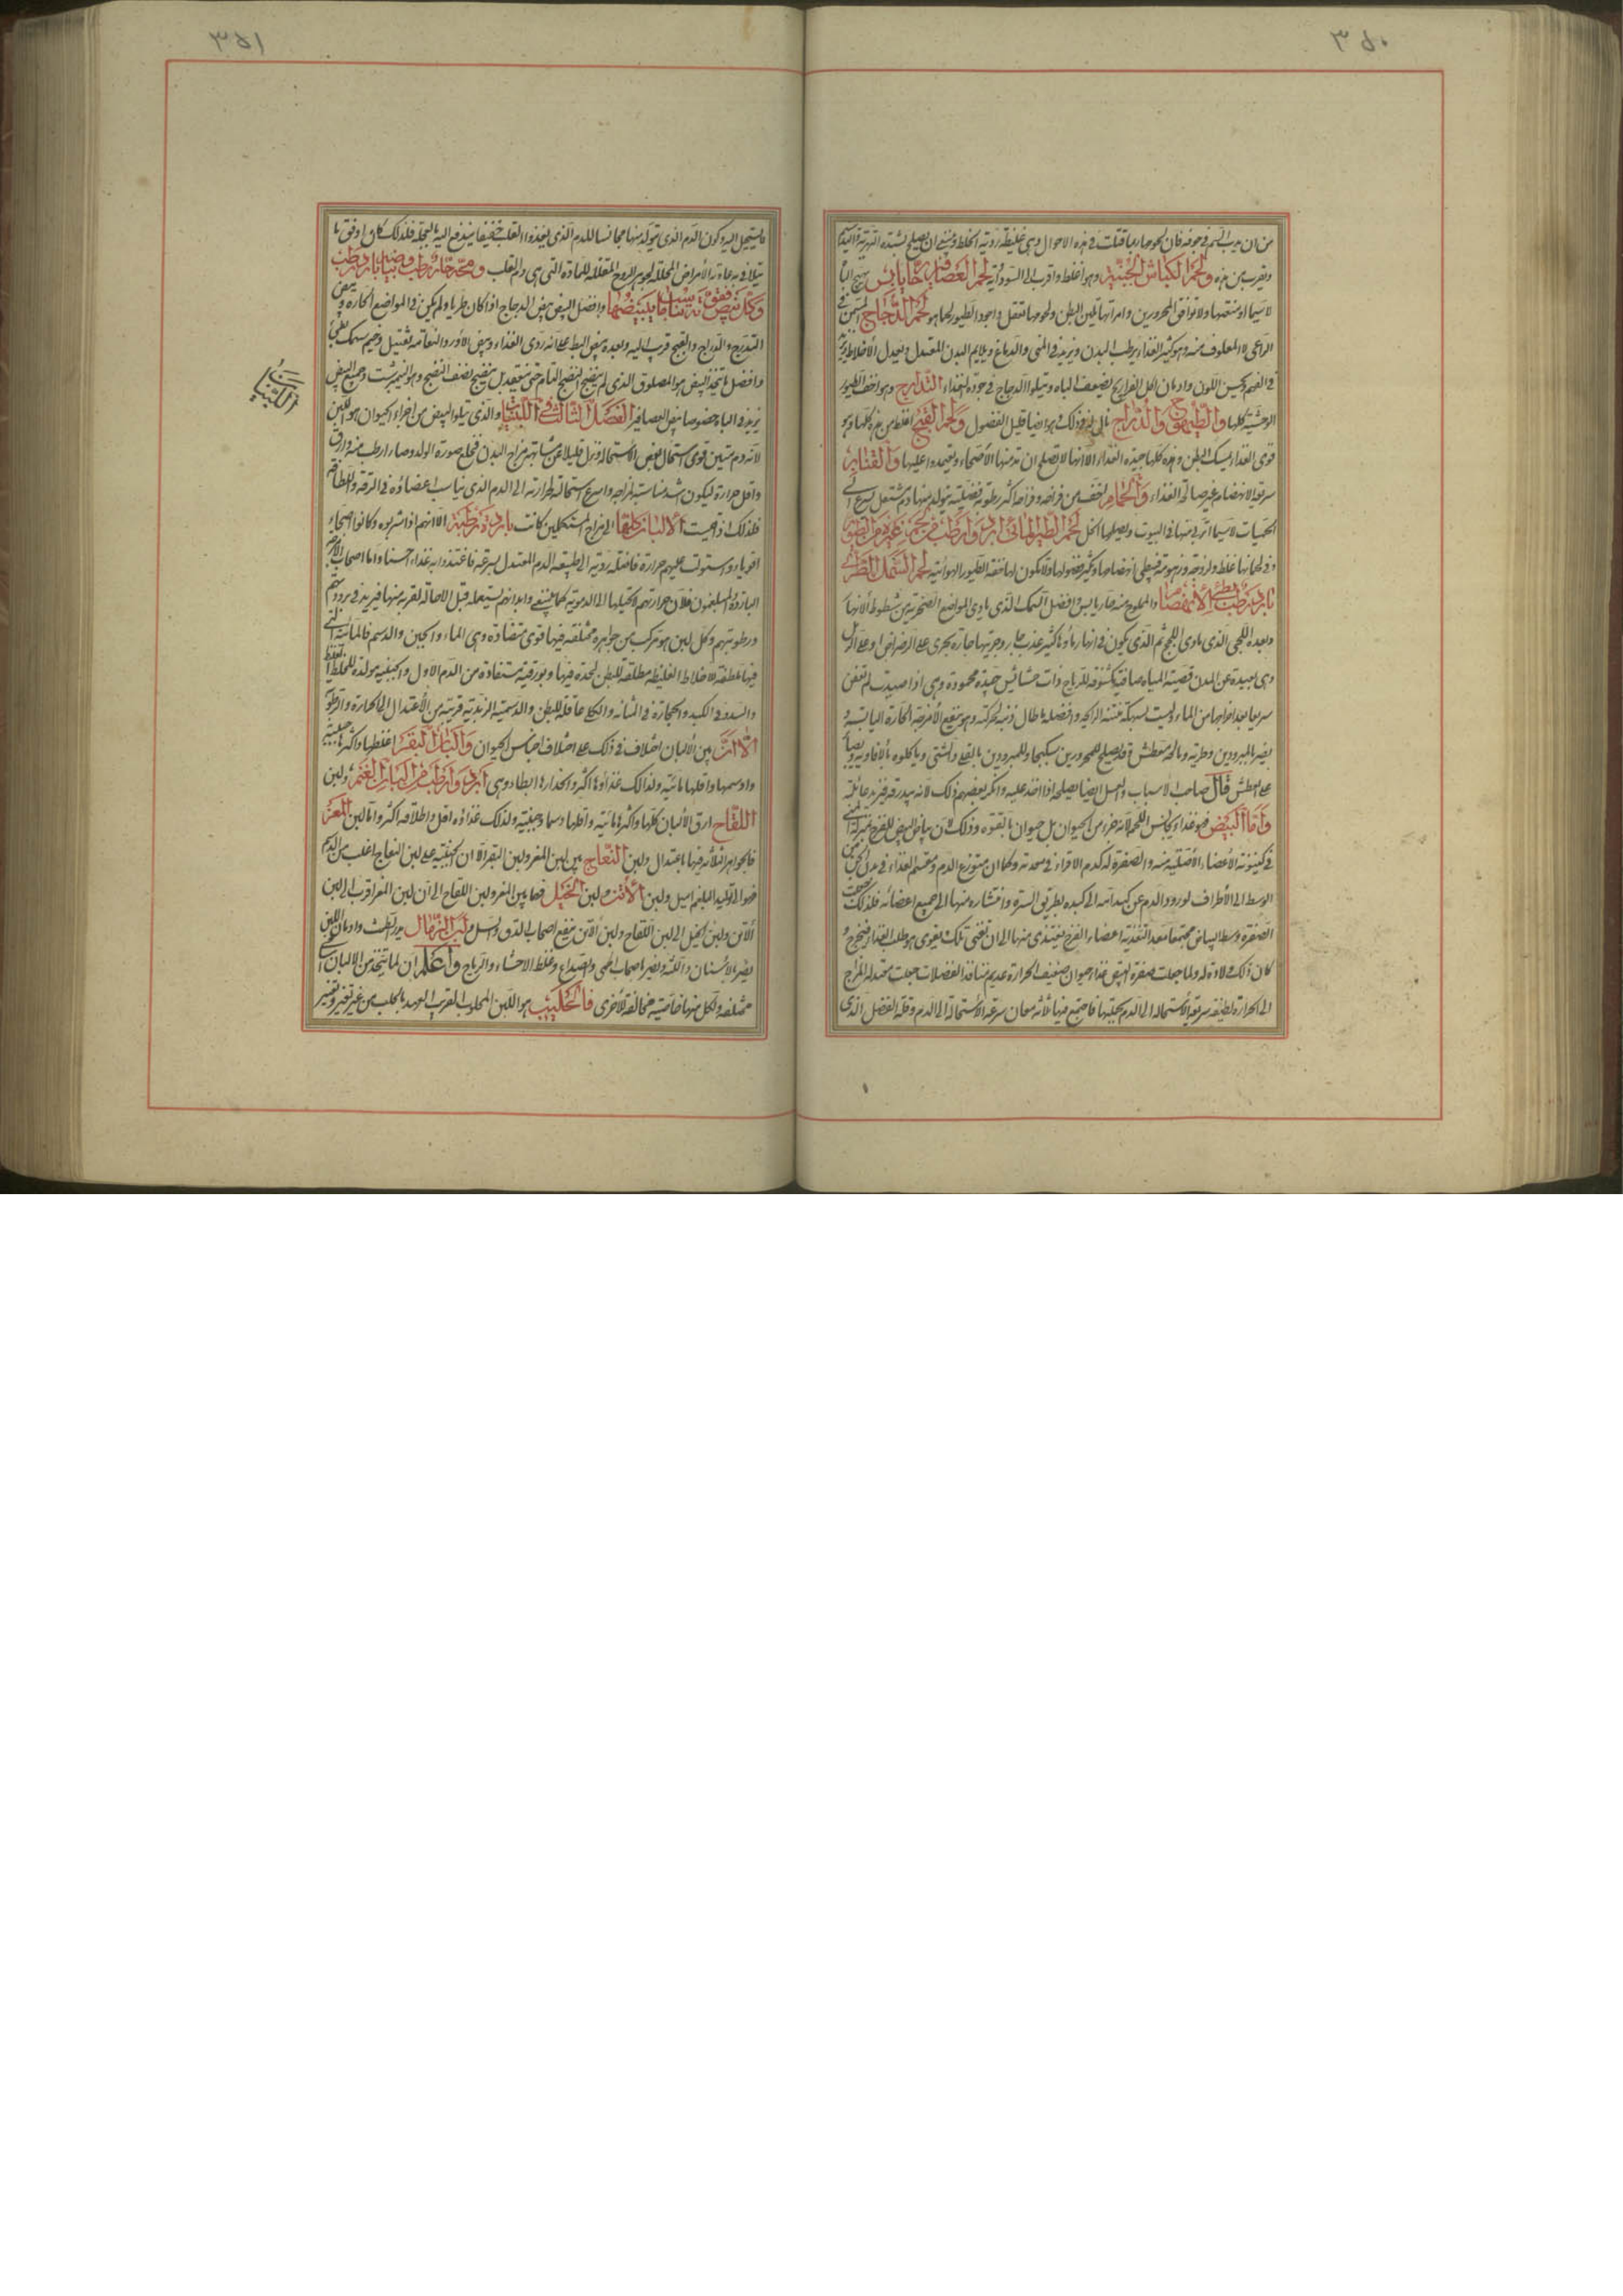 ٣٥٠
من ان يدب السم في جوفه فان لحومها ربما قتلت في هذه الاحوال وهي غليظة ردية الخلط وينبغي ان يصلح بشدة التهرية
ويقرب من هذه ولحم الكباش الجبلية وهو اغلظ واقرب الى السوداوية لحم العصافير حار يابس يهيج الباه
لا سيما ادمغتها ولا توافق المحرورين وامراقها تلين البطن ولحومها تعقل واجود الطيور لحما هو لحم الدجاج
الراعي لا المعلوف منه وهو كثير الغذاء يرطب البدن ويزيد في المني والدماغ ويلايم البدن المعتدل ويعدل الاخلاط
في الفهم ويحسن اللون وادمان اكل الفراريج يضعف الباه ويتلو الدجاج في جودة الغذاء التدارج وهو اخف الطيور
الوحشية كلها والطيهوج والدراج تالي له في ذلك وهو ايضا قليل الفضول ولحم القبج اغلظ من هذه كلها وهو
قوي الغذاء يمسك البطن وهذه كلها جيدة الغذاء الا انها لا تصلح ان يدمنها الاصحاء ويعتمدوا عليها والقنابر
سريعة الانهضام غير صالحة الغذاء والحمام اخف من فراخه وفراخه اكثر رطوبة فضلية يتولد منها دم مشتعل يسرع الى
الحميات لا سيما ما تربى منها في البيوت ويصلحها الخل لحم الطير المائي ابرد وارطب من لحم غيره من الطيور
وفي لحمانها غلظ ولزوجة وزهومة فيبطئ انهضامها ويكثر فضولها ولا يكون لها خفة الطيور الهوائية لحم السمك الطري
بارد رطب بطئ الانهضام والمملوح منه حار يابس وافضل السمك الذي ياوي المواضع الصخرية من شطوط الانهار
وبعده اللجي الذي ياوي اللجج ثم الذي يكون في انهار ماؤها كثير عذب جار وجريتها حارة يجري على الرضراض وعلى الرمل
وهي بعيدة عن المدن قصية المياه صافية مكشوفة للرياح ذات حشائش جيدة محمودة وهي اذا صيدت لم تعفن
سريعا بعد اخراجها من الماء وليست لسهكة منتنة الرائحة وافضله ما طال ذنبه لحركته وهو ينفع الامزجة الحارة اليابسة و
يضر المبرودين وطريه ومالحه معطش وقد يصلح للمحرورين سكبجا وللمبرودين بالقلي والشي وياكلوه بالافاويه
على العطش قال صاحب الاسباب والعسل ايضا يصلحه اذا اخذ عليه وانكر بعضهم ذلك لانه يبدرقه فيزيد غائلته
واما البيض فهو غذاء يجانس اللحم لانه جزء من الحيوان بل حيوان بالقوة وذلك لان بياض البيض للفرخ بمنزلة المني
في كينونة الاعضاء الاصلية منه والصفرة له كدم الاقراء في معدته وكما ان متوزع الدم ومقسم الغذاء في بدن الجنين
الوسط الى الاطراف لورود الدم عن كبد امه الى كبده بطريق السرة وانتشاره منها الى جميع اعضائه فلذلك جعلت
الصفرة وسط البياض مجتمعا معدا لتغذية اعضاء الفرخ فيغتذي منها الى ان تفنى تلك ويقوى هو طلب الغذاء فيخرج و
كان ذلك في ولادته له ولما جعلت صفرة البيض غذاء حيوان ضعيف الحرارة عديم منافذ الفضلات جعلت معتدلة المزاج
الى الحرارة لطيفة سريعة الاستحالة الى الدم بكليتها فاجتمع فيها ثلاثة معان سرعة الاستحالة الى الدم وقلة الفضل الذي
٣٥١
ما يستحيل اليه وكون الدم الذي يتولد منها مجانسا للدم الذي يغذو القلب خفيفا يندفع اليه بالعجلة فلذلك كان اوفق ما
يتلافى به عادية الامراض المحللة لجوهر الروح المقللة للمادة التي هي دم القلب ومحه حار رطب وبياضه بارد رطب
وكل بيض فقوته تناسب ما يبيضها وافضل البيض بيض الدجاج اذا كان طريا ولم يكن في المواضع الحارة وبيض
التدرج والدراج والقبج قريب اليه وبعده بيض البط على انه ردي الغذاء وبيض الاوز والنعامة ثقيل وخيم سهك بطئ
وافضل ما يتخذ البيض هو المصلوق الذي لم ينضج النضج التام حتى ينعقد بل ينضج نصف النضج وهو النيمبرشت وجميع البيض
يزيد في الباه خصوصا بيض العصافير الفصل الثالث في اللبنيات والذي يتلو البيض من اجزاء الحيوان هو اللبن
اللبنيات
لانه دم متين قوي استحال بعض الاستحالة ونزل قليلا عن مشابهة مزاج البدن فخلع صورة الولد وصار ارطب منه وارق
واقل حرارة ليكون اشد مناسبة لمزاجه واسرع استحالة لحرارته الى الدم الذي يناسب اعضاؤه في الرقة واللطافة
فلذلك اذا قيست الالبان كلها الى مزاج المستكملين كانت باردة رطبة الا انهم اذا شربوه وكانوا اصحاء
اقوياء واستولت عليهم حرارة فاضلة ردته الى طبيعة الدم المعتدل بسرعة فاغتذوا به غذاء حسنا واما اصحاب الامزجة
الباردة البلغميون فلان حرارتهم لا تحيلها الى الدموية كما ينبغي وابدانهم يستعمله قبل الاحالة لقربه منها فيزيد في برودتهم
ورطوبتهم وكل لبن هو مركب من جواهر مختلفة فيها قوى متضادة وهي الماء والجبن والدسم فالمائية التي
فيها ملطفة للاخلاط الغليظة مطلقة للبطن لحدة فيها وبورقية مستفادة من الدم الاول والجبنية مولدة للخلط الغليظ
والسدد في الكبد والحجارة في المثانة والكلى عاقلة للبطن والدسمية الزبدية قريبة من الاعتدال الى الحرارة والرطوبة
الا ان بين الالبان اختلاف في ذلك على اختلاف اجناس الحيوان والبان البقر اغلظها واكثرها جبنية
وادسمها واقلها مائية ولذلك غذاؤها اكثر وانحدارها ابطاء وهي ابرد وارطب من البان الغنم ولبن
اللقاح ارق الالبان كلها واكثرها مائية واقلها دسما وجبنية ولذلك غذاؤه اقل واطلاقه اكثر واما لبن المعز
فالجواهر الثلاثة فيها باعتدال ولبن النعاج بين لبن المعز ولبن البقر الا ان الجبنية على لبن النعاج اغلب من الدسم
فهو الى توليد البلغم اميل ولبن الاتن ولبن الخيل فما بين المعز ولبن اللقاح الا ان لبن المعز اقرب الى لبن
الاتن ولبن الخيل الى لبن اللقاح ولبن الاتن ينفع اصحاب الدق والسل ولبن الرماك يدر الطمث وادمان اللبن
يضر بالاسنان واللثة ويضر باصحاب الحمى والصداع وغلظ الاحشاء والرياح واعلم ان لما يتخذ من الالبان اسامي
مختلفة ولكل منها خاصية مخالفة للاخرى فالحليب هو اللبن المحلوب القريب العهد بالحلب من غير تغير وتغيير